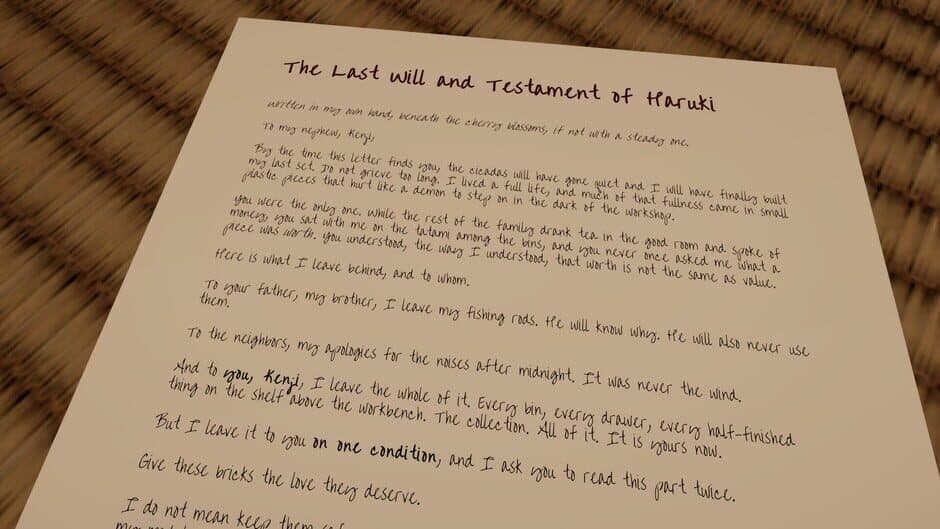 The Last Will and Testament of Haruki
Written in my own hand, beneath the cherry blossoms, if not with a steady one.
To my nephew, Kenji,
By the time this letter finds you, the cicadas will have gone quiet and I will have finally built
my last set. Do not grieve too long. I lived a full life, and much of that fullness came in small
plastic pieces that hurt like a demon to step on in the dark of the workshop.
You were the only one. While the rest of the family drank tea in the good room and spoke of
money, you sat with me on the tatami among the bins, and you never once asked me what a
piece was worth. You understood, the way I understood, that worth is not the same as value.
Here is what I leave behind, and to whom.
To your father, my brother, I leave my fishing rods. He will know why. He will also never use
them.
To the neighbors, my apologies for the noises after midnight. It was never the wind.
And to you, Kenji, I leave the whole of it. Every bin, every drawer, every half-finished
thing on the shelf above the workbench. The collection. All of it. It is yours now.
But I leave it to you on one condition, and I ask you to read this part twice.
Give these bricks the love they deserve.
I do not mean keep them